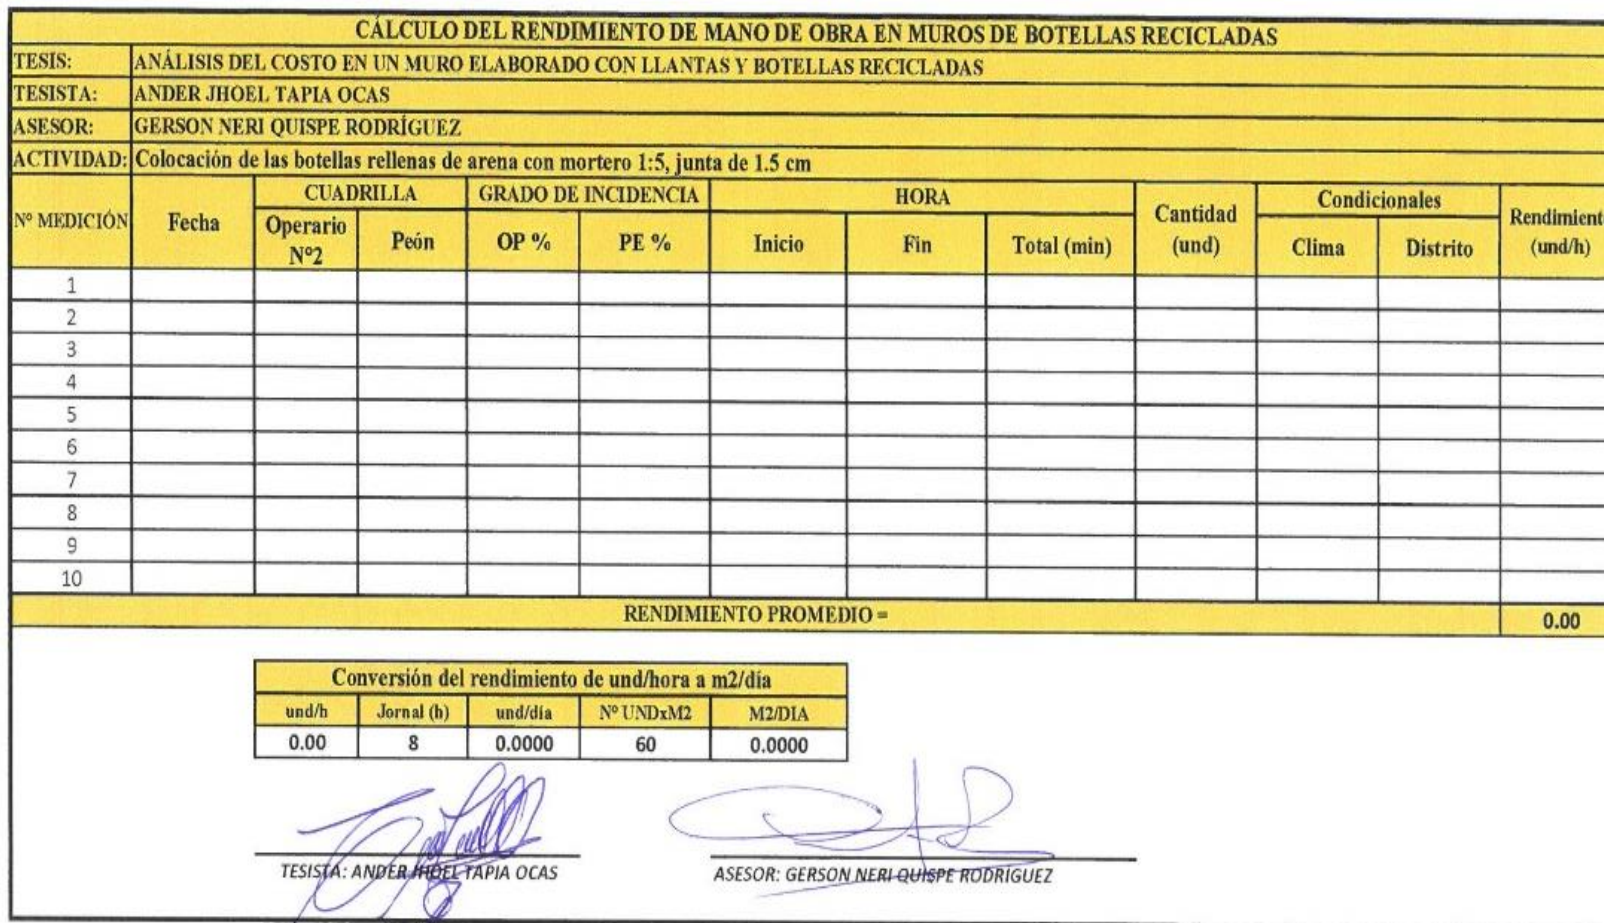 CÁLCULO DEL RENDIMIENTO DE MANO DE OBRA EN MUROS DE BOTELLAS RECICLADAS
TESIS: ANÁLISIS DEL COSTO EN UN MURO ELABORADO CON LLANTAS Y BOTELLAS RECICLADAS
TESISTA: ANDER JHOEL TAPIA OCAS
ASESOR: GERSON NERI QUISPE RODRÍGUEZ
ACTIVIDAD: Colocación de las botellas rellenas de arena con mortero 1:5, junta de 1.5 cm
Nº MEDICIÓN Fecha CUADRILLA GRADO DE INCIDENCIA HORA Cantidad (und) Condicionales Rendimient (und/h)
Operario Nº2 Peón OP % PE % Inicio Fin Total (min) Clima Distrito
1
2
3
4
5
6
7
8
9
10
RENDIMIENTO PROMEDIO = 0.00
Conversión del rendimiento de und/hora a m2/día
und/h Jornal (h) und/día Nº UNDxM2 M2/DIA
0.00 8 0.0000 60 0.0000
TESISTA: ANDER JHOEL TAPIA OCAS ASESOR: GERSON NERI QUISPE RODRÍGUEZ